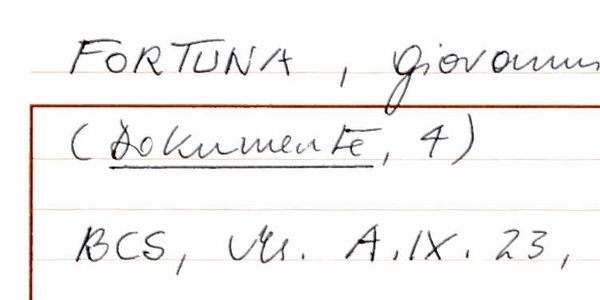 FORTUNA, Giovanni
(Dokumente, 4)
BCS, Ms. A.IX.23,